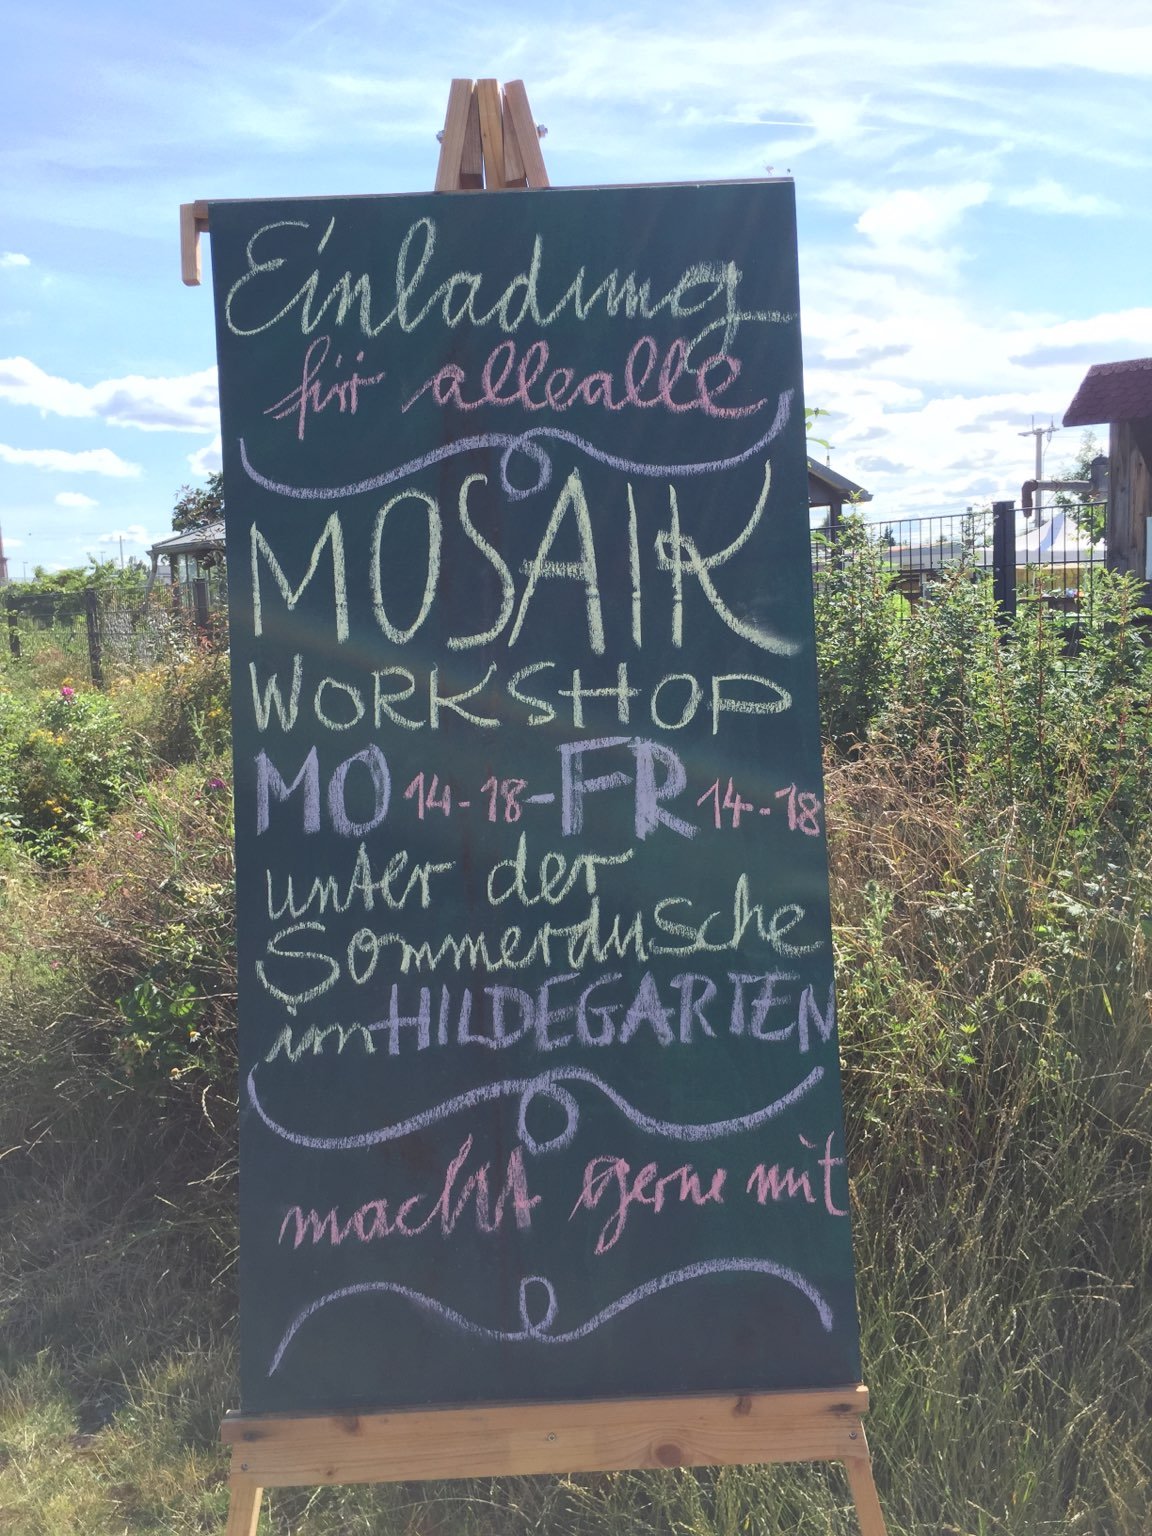 Einladung
für allealle
MOSAIK
WORKSHOP
MO 14-18-FR 14-18
unter der
Sommerdusche
im HILDEGARTEN
macht gerne mit